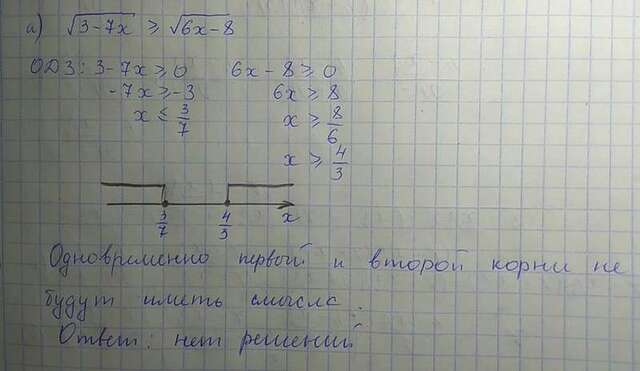 а) √(3-7x) ≥ √(6x-8)
ОДЗ: 3-7x ≥ 0 6x-8 ≥ 0
-7x ≥ -3 6x ≥ 8
x ≤ 3/7 x ≥ 8/6
x ≥ 4/3
3/7 4/3 x
Одновременно первый и второй корни не
будут иметь смысла.
Ответ: нет решений